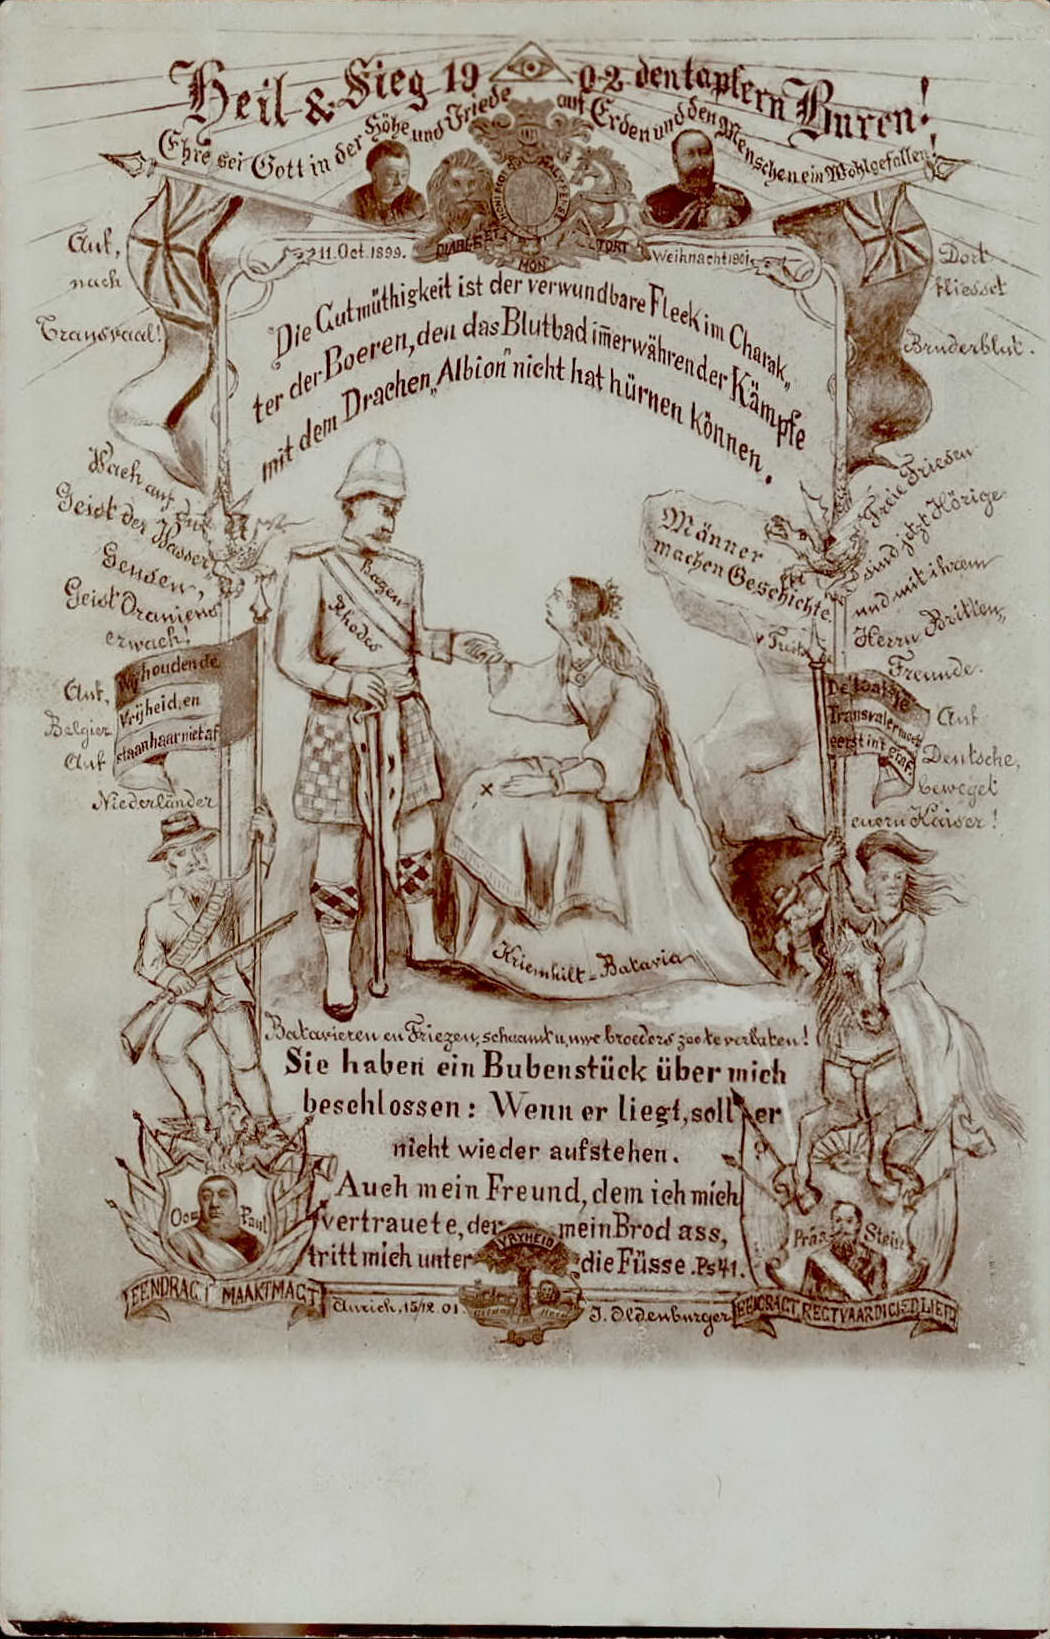 Heil & Sieg 1902 den tapfern Buren!
Ehre sei Gott in der Höhe und Friede auf Erden und den Menschen ein Wohlgefallen!
HONI SOIT QUI MAL Y PENSE
DIEU ET MON
11. Oct. 1899.
Weihnacht 1901
Auf,
nach
Transvaal!
Dort
fliesset
Bruderblut.
Die Gutmüthigkeit ist der verwundbare Fleck im Charak„
ter der Boeren, den das Blutbad im̅erwährender Kämpfe
mit dem Drachen „Albion" nicht hat hürnen können.
Wach auf du
Geist der Wasser
Geusen,
Geist Oraniens
erwach!
Freie Friesen
sind jetzt Hörige
und mit ihrem
Herrn Britten„
Freunde.
Männer
machen Geschichte.
Hagen
Rhodes
Wij houden de
Vrijheid, en
staan haar niet af
Auf,
Belgier
Auf
Niederländer
De laatste
Transvaler moet
eerst in't graf.
Auf
Deutsche,
beweget
euern Kaiser!
Kriemhilt-Batavia
Batavieren en Friezen, schaamt u, uwe broeders zoo te verlaten!
Sie haben ein Bubenstück über mich
beschlossen: Wenn er liegt, soll er
nicht wieder aufstehen.
Auch mein Freund, dem ich mich
vertrauete, der mein Brod ass,
tritt mich unter die Füsse. Ps 41.
Oom Paul
VRYHEID
Präs Stein
EENDRAGT MAAKT MAGT
Aurich, 15/12. 01.
J. Oldenburger